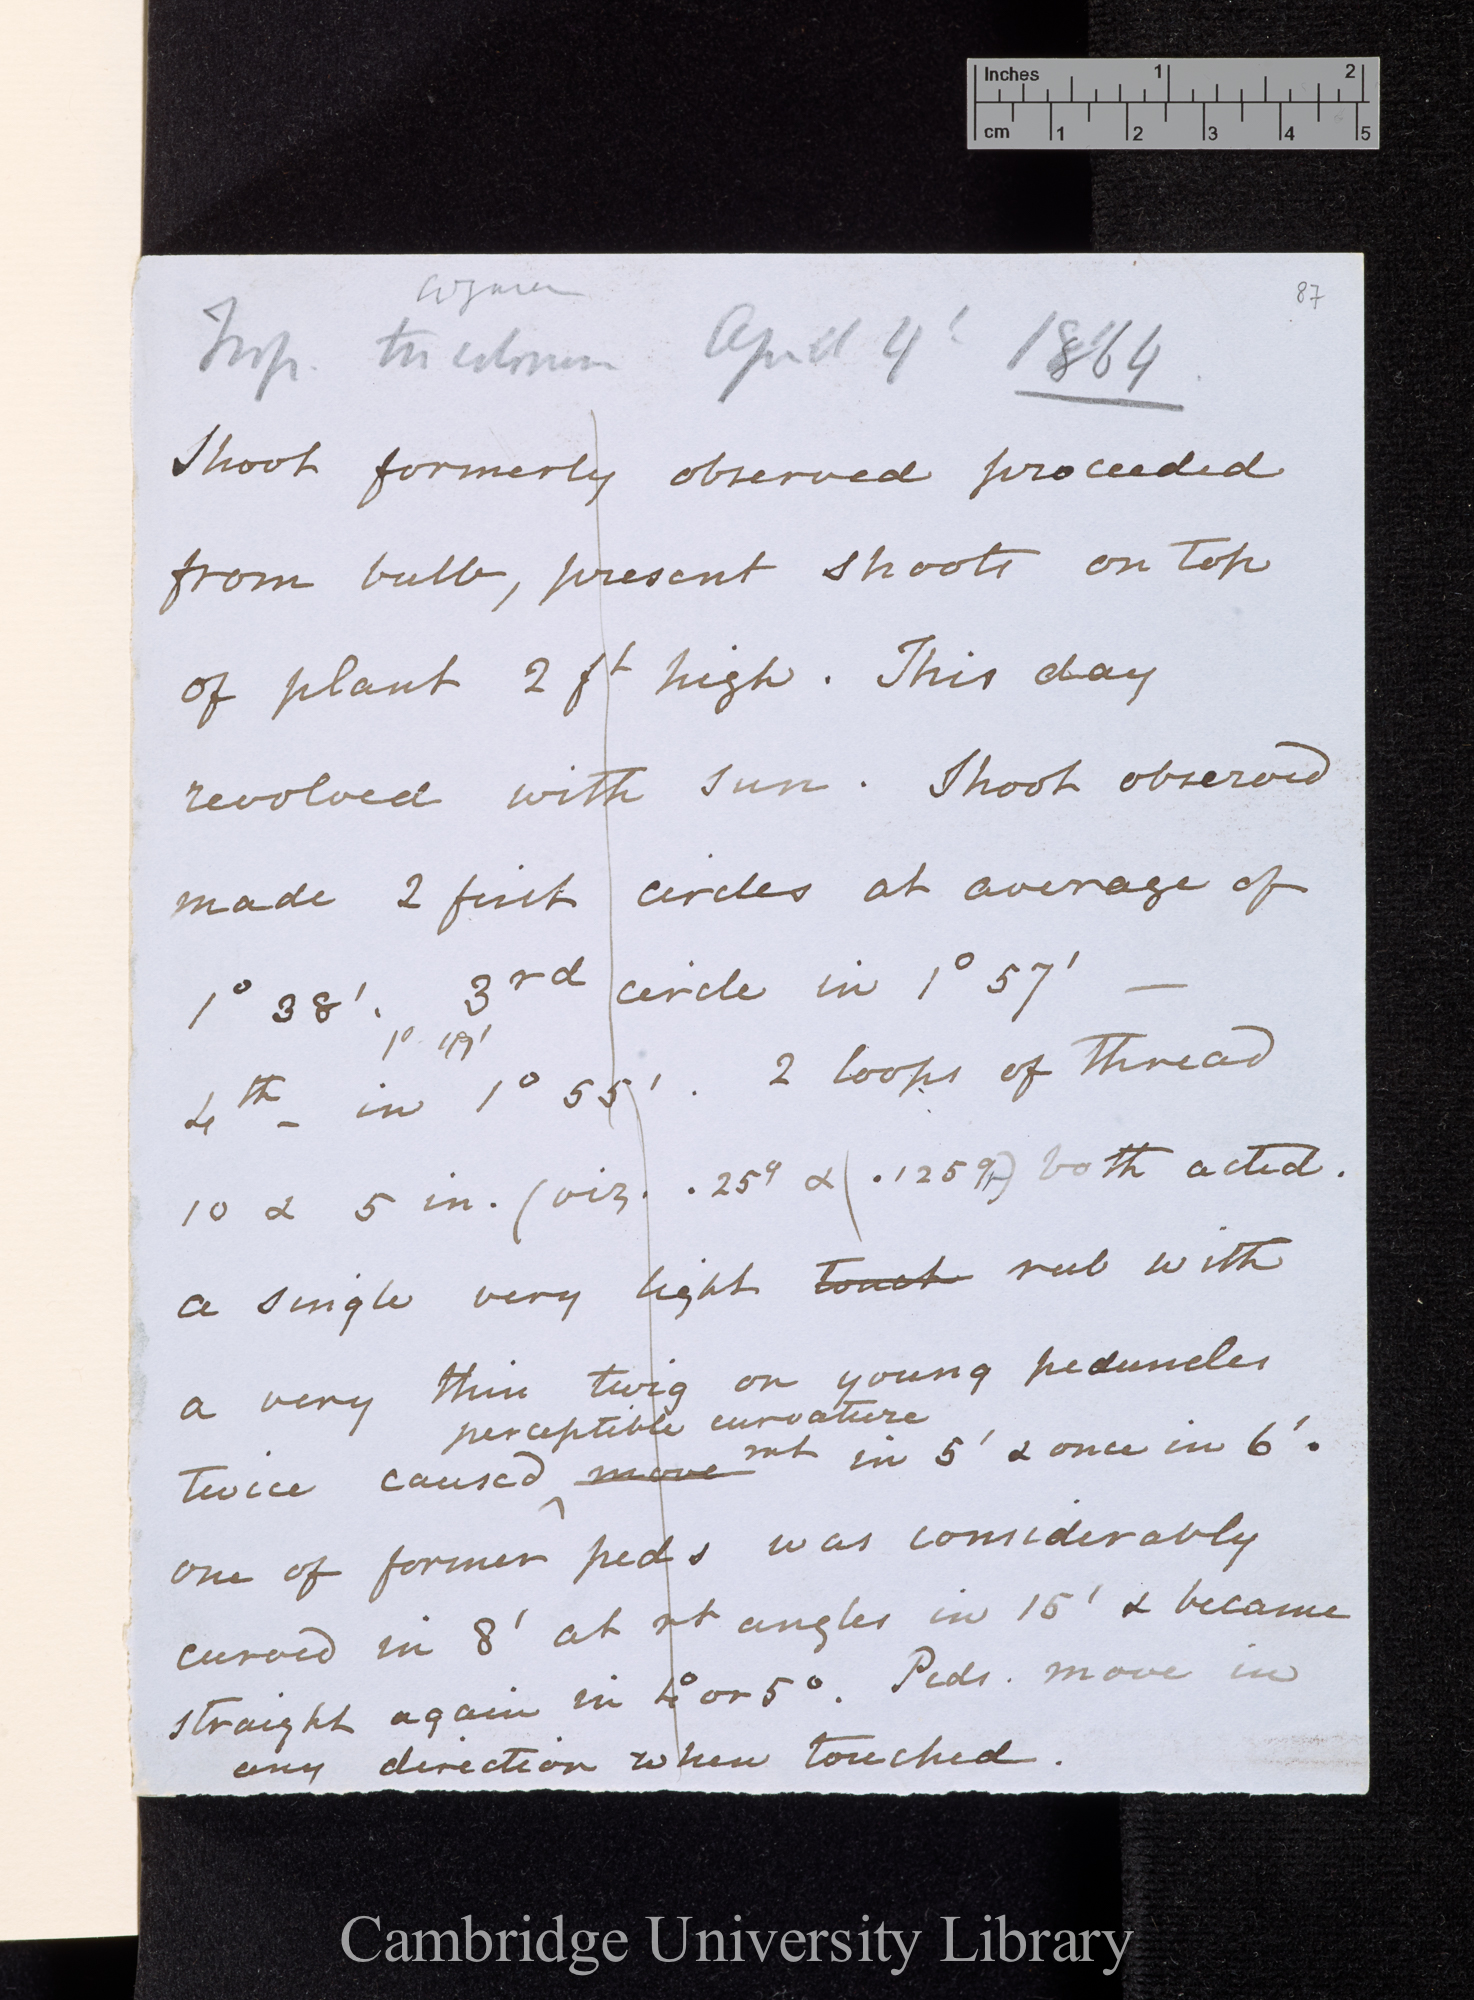 Inches 1 2
cm 1 2 3 4 5
87
Trop. tricolorum April 4' 1864
Shoot formerly observed proceeded
from bulb, present shoots on top
of plant 2 ft high. This day
revolved with sun. Shoot observed
made 2 first circles at average of
1° 38'. 3rd circle in 1° 57' —
1° 49'
4th - in 1° 55'. 2 loops of thread
10 & 5 in. (viz. .25g & (.125gr) both acted.
a single very light touch rub with
a very thin twig on young peduncles
perceptible curvature
twice caused movemt in 5' & once in 6'.
one of former peds was considerably
curved in 8' at rt angles in 15' & became
straight again in 4° or 5°. Peds. move in
any direction when touched.
Cambridge University Library